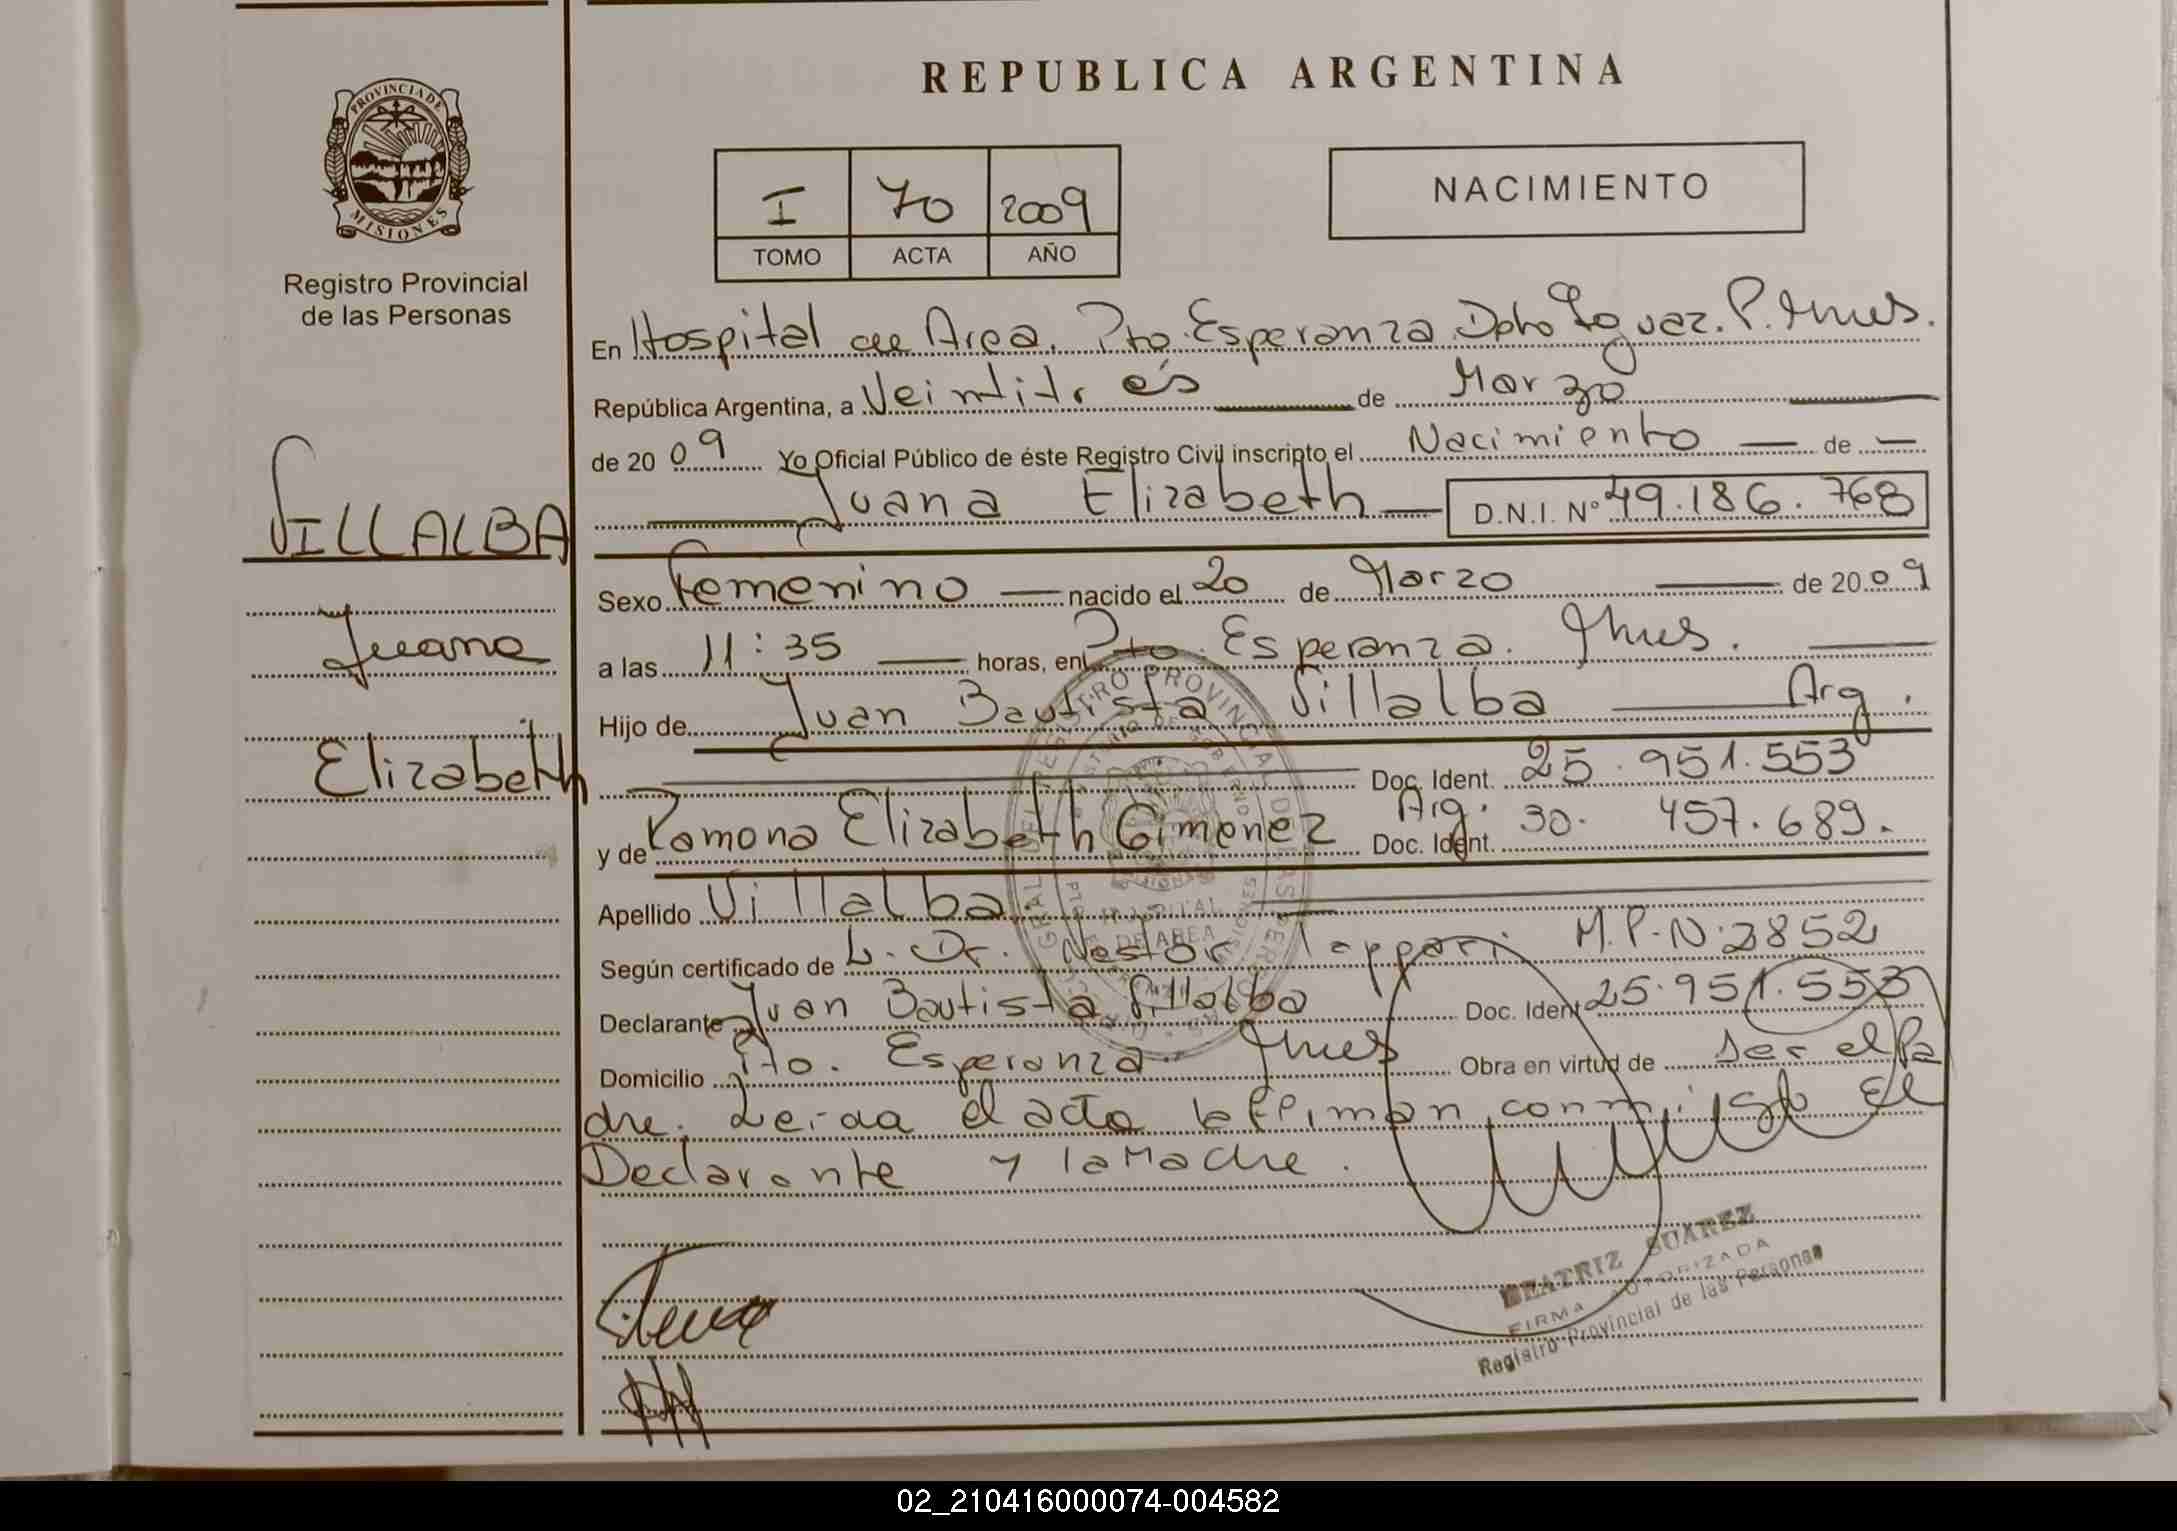 PROVINCIA DE
MISIONES
Registro Provincial
de las Personas
VILLALBA
Juana
Elizabeth
REPUBLICA ARGENTINA
I 70 2009
TOMO ACTA AÑO
NACIMIENTO
En Hospital de Area. Pto. Esperanza Dpto Iguaz. P. Mnes.
República Argentina, a Veintitrés de Marzo
de 2009 Yo Oficial Público de éste Registro Civil inscripto el Nacimiento de
Juana Elizabeth D.N.I. Nº 49.186.768
Sexo Femenino nacido el 20 de Marzo de 2009
a las 11:35 horas, en Pto. Esperanza. Mnes.
Hijo de Juan Bautista Villalba Arg.
Doc. Ident. 25.951.553
y de Ramona Elizabeth Gimenez Arg. Doc. Ident. 30.457.689.
Apellido Villalba
Según certificado de Dr. Nestor M.P.N: 2852
Declarante Juan Bautista Villalba Doc. Ident 25.951.553
Domicilio Pto. Esperanza Mnes Obra en virtud de ser el Pa
dre. Leida el acta la firman conmigo El
Declarante y la Madre.
BEATRIZ SUAREZ
FIRMA AUTORIZADA
Registro Provincial de las Personas
02_210416000074-004582